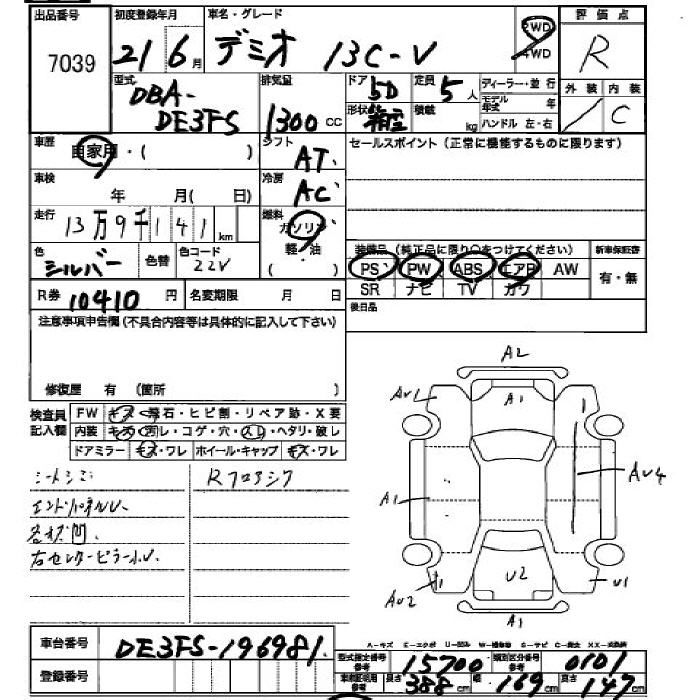 出品番号 初度登録年月 車名・グレード 評価点
7039 21 6月 デミオ 13C-V 2WD 4WD R
型式 排気量 ドア 5D 定員 5人 ディーラー・並行 外装 内装
DBA-DE3FS 1300cc 形状 箱型 積載 kg モデル年式 年 C
ハンドル 左・右
車歴 自家用・( ) シフト AT セールスポイント(正常に機能するものに限ります)
車検 年 月(日) 冷房 AC
走行 13万9千141km 燃料 ガソリン 軽・油 ( )
色 シルバー 色替 色コード 22V
装備品(純正品に限り○をつけてください) 新車保証書
PS PW ABS エアB AW 有・無
SR ナビ TV カワ
R券 10410円 名変期限 月 日 後日品
注意事項申告欄(不具合内容等は具体的に記入して下さい)
修復歴 有 (箇所 )
検査員記入欄 FW キズ・飛石・ヒビ割・リペア跡・X要
内装 キズ・汚レ・コゲ・穴・スレ・ヘタリ・破レ
ドアミラー キズ・ワレ ホイール・キャップ キズ・ワレ
シートシミ Rフロアシワ
エンドパネルU
右センターピラー小U
A2
AU1 A1 1
A1 AU4
AU2 U2 U1
A1
A-キズ E-エクボ U-凹み W-補修跡 S-サビ C-腐食 XX-交換済
車台番号 DE3FS-196981
型式指定番号 参考 15700 類別区分番号 参考 0101
登録番号 車検証明用 参考 長さ 388cm 幅 169cm 高さ 147cm